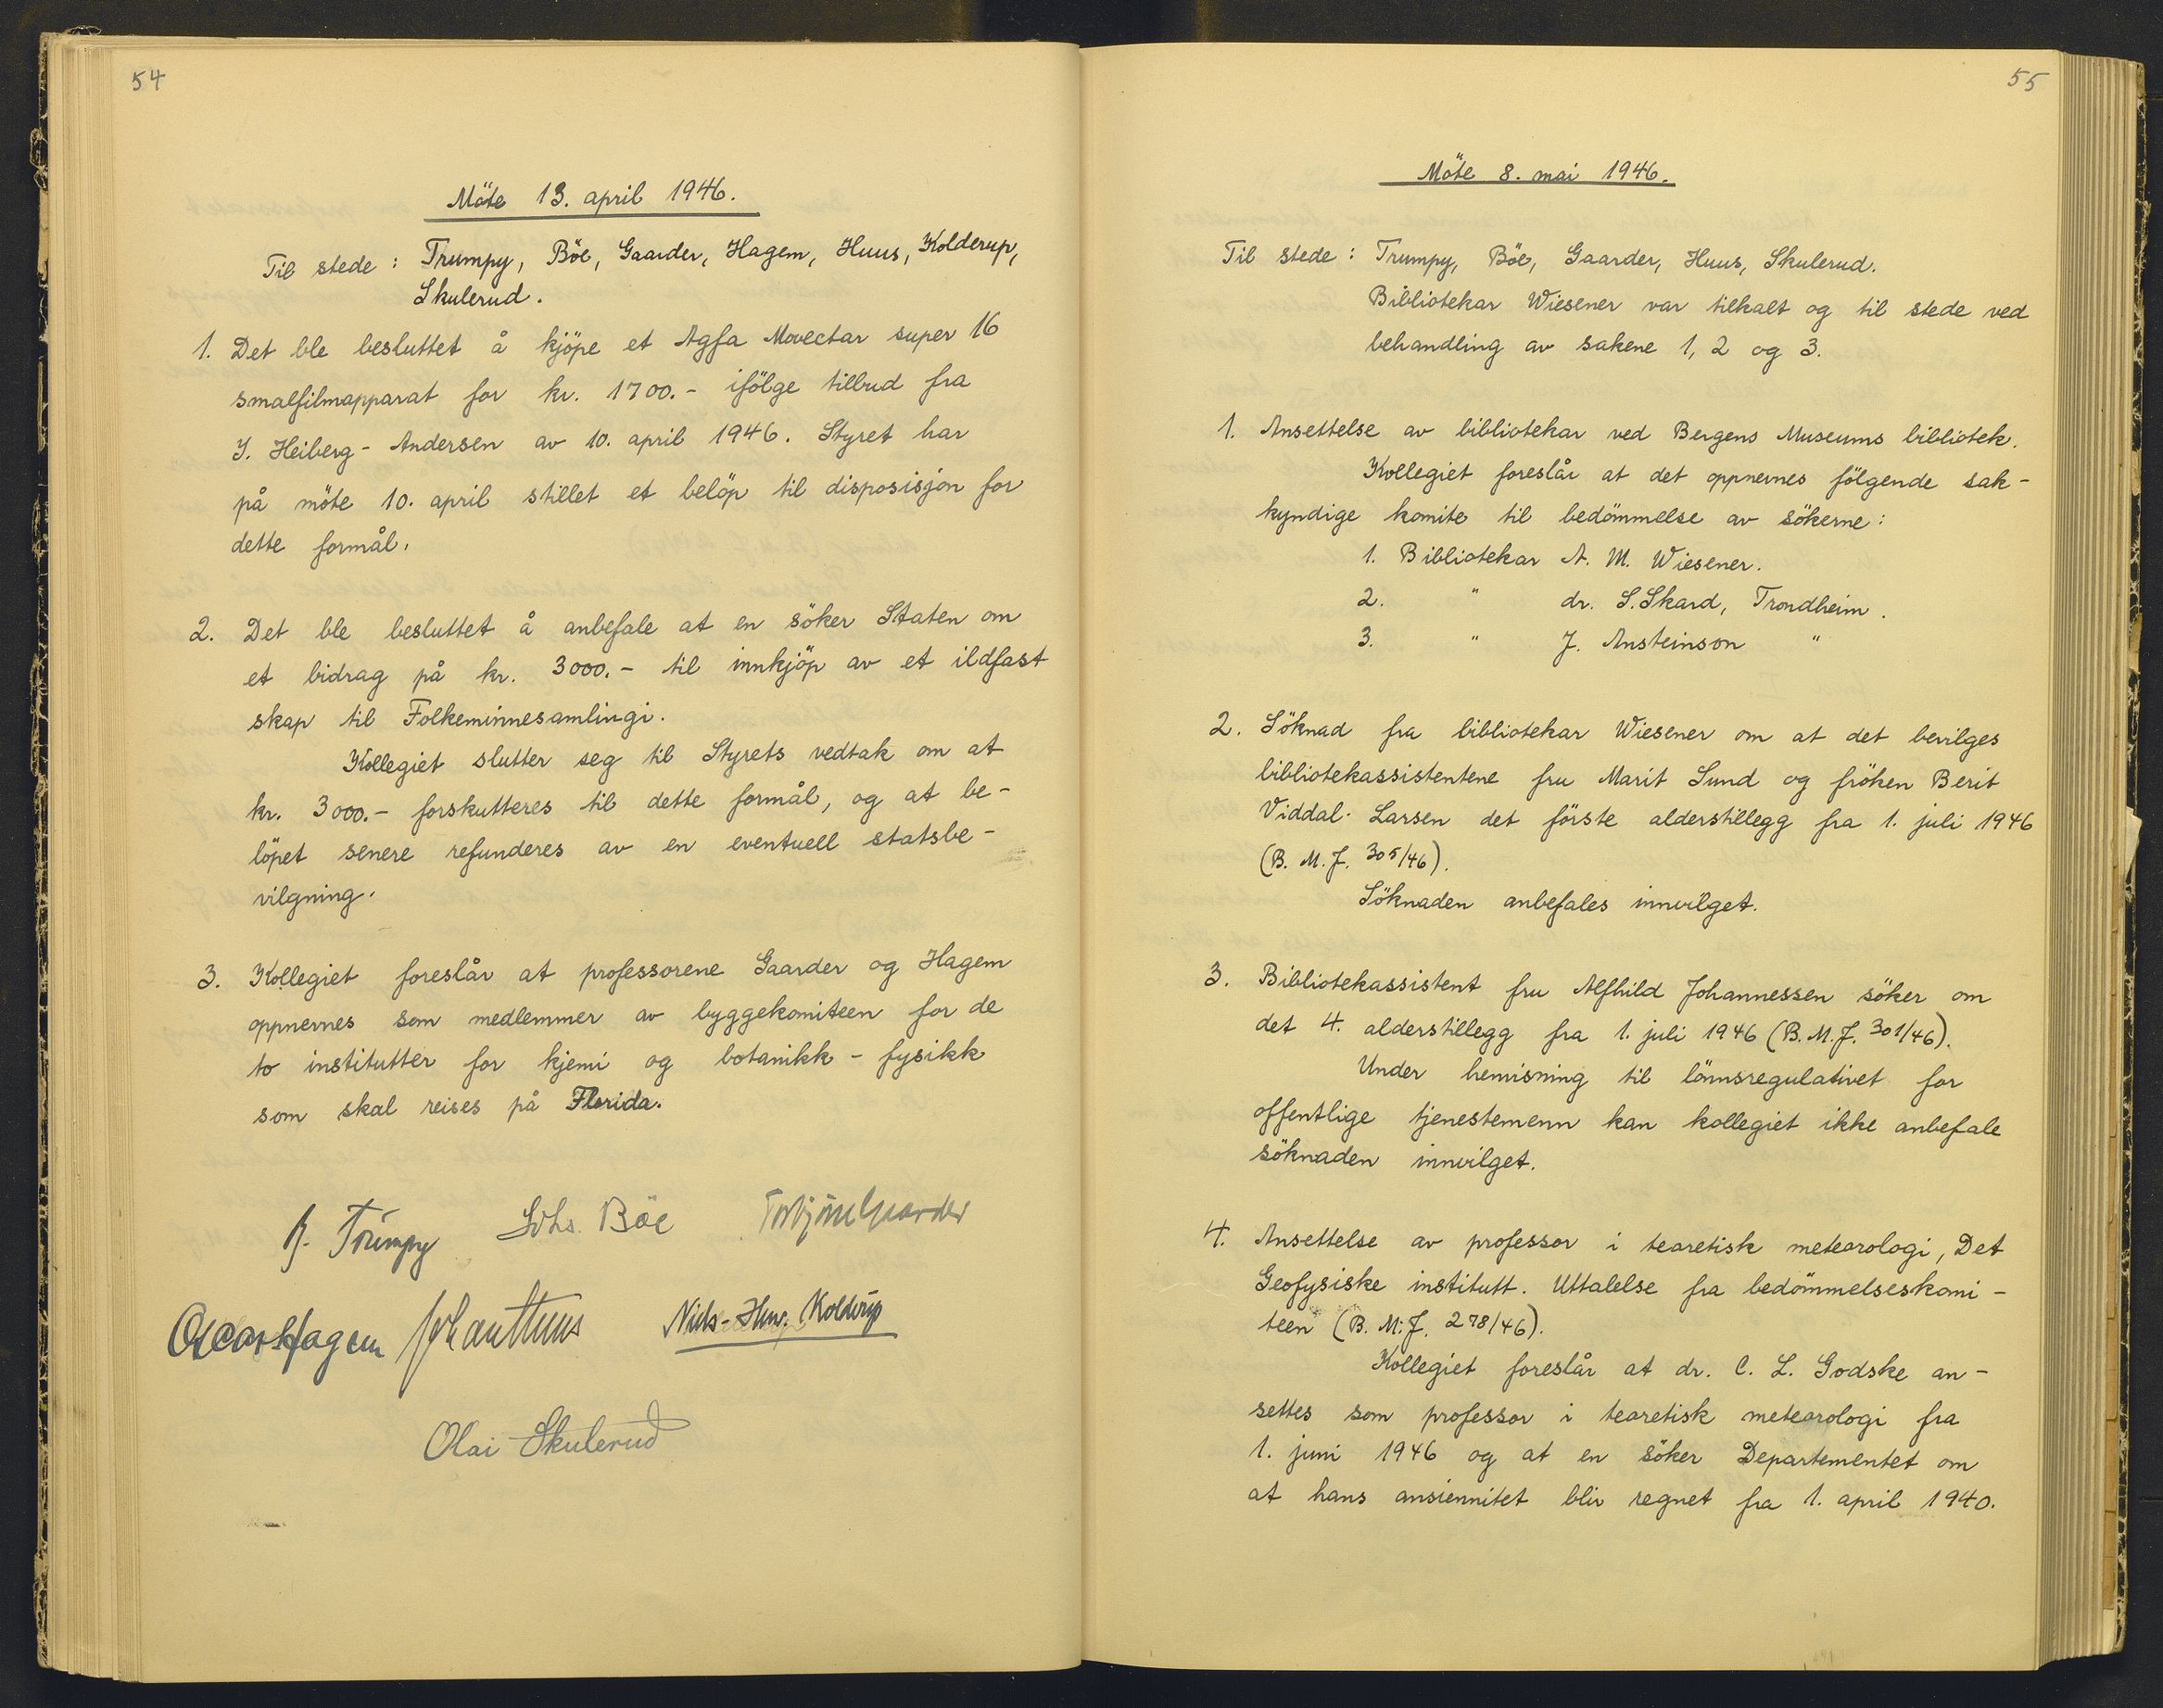 54
Möte 13. april 1946.
Til stede : Trumpy, Böe, Gaarder, Hagem, Huus, Kolderup,
Skulerud.
1. Det ble besluttet å kjöpe et Agfa Movectar super 16
smalfilmapparat for kr. 1700.- ifölge tilbud fra
I. Heiberg-Andersen av 10. april 1946. Styret har
på möte 10. april stillet et belöp til disposisjon for
dette formål.
2. Det ble besluttet å anbefale at en söker Staten om
et bidrag på kr. 3000.- til innkjöp av et ildfast
skap til Folkeminnesamlingi.
Kollegiet slutter seg til Styrets vedtak om at
kr. 3000.- forskutteres til dette formål, og at be-
löpet senere refunderes av en eventuell statsbe-
vilgning.
3. Kollegiet foreslår at professorene Gaarder og Hagem
oppnevnes som medlemmer av byggekomiteen for de
to institutter for kjemi og botanikk - fysikk
som skal reises på Florida.
B. Trumpy Johs. Böe Torbjörn Gaarder
Oscar Hagem Johan Huus Niels-Henr. Kolderup
Olai Skulerud
55
Möte 8. mai 1946.
Til stede : Trumpy, Böe, Gaarder, Huus, Skulerud.
Bibliotekar Wiesener var tilkalt og til stede ved
behandling av sakene 1, 2 og 3.
1. Ansettelse av bibliotekar ved Bergens Museums bibliotek.
Kollegiet foreslår at det oppnevnes fölgende sak-
kyndige komite til bedömmelse av sökerne :
1. Bibliotekar A. M. Wiesener.
2. " dr. S. Skard, Trondheim.
3. " J. Ansteinson "
2. Söknad fra bibliotekar Wiesener om at det bevilges
bibliotekassistentene fru Marit Sund og fröken Berit
Viddal-Larsen det förste alderstillegg fra 1. juli 1946
(B. M. J. 305/46).
Söknaden anbefales innvilget.
3. Bibliotekassistent fru Alfhild Johannessen söker om
det 4. alderstillegg fra 1. juli 1946 (B. M. J. 301/46).
Under henvisning til lönnsregulativet for
offentlige tjenestemenn kan kollegiet ikke anbefale
söknaden innvilget.
4. Ansettelse av professor i teoretisk meteorologi, Det
Geofysiske institutt. Uttalelse fra bedömmelseskomi-
teen (B. M. J. 278/46).
Kollegiet foreslår at dr. C. L. Godske an-
settes som professor i teoretisk meteorologi fra
1. juni 1946 og at en söker Departementet om
at hans ansiennitet blir regnet fra 1. april 1940.